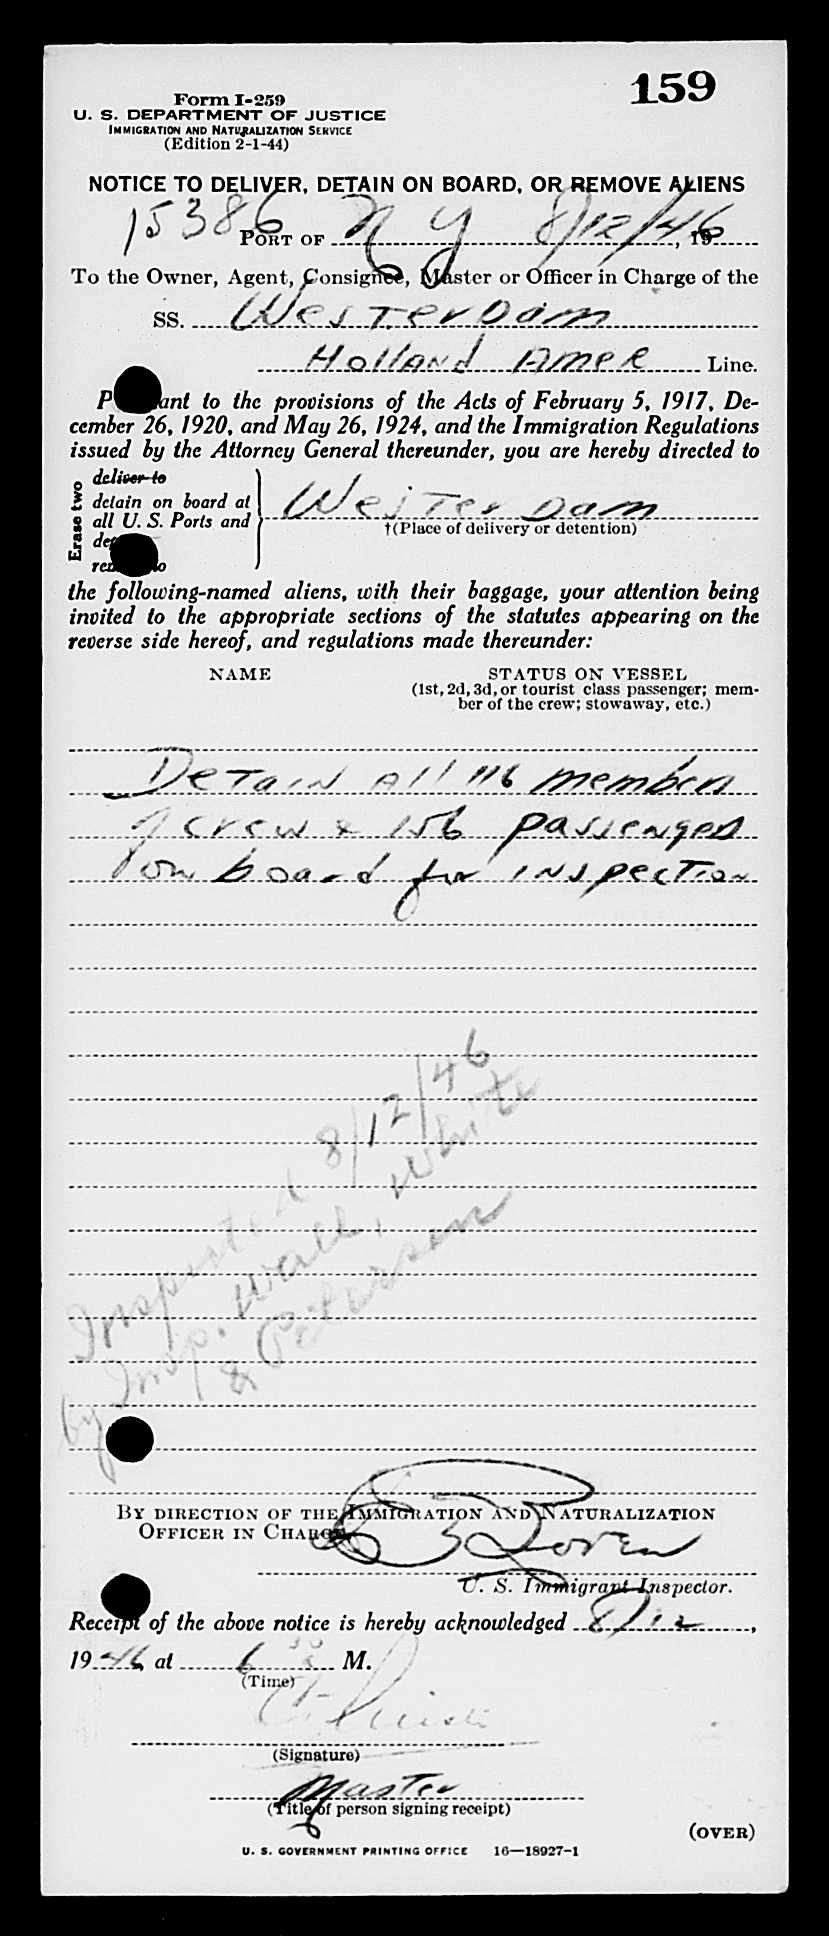 159
Form I-259
U. S. DEPARTMENT OF JUSTICE
IMMIGRATION AND NATURALIZATION SERVICE
(Edition 2-1-44)
NOTICE TO DELIVER, DETAIN ON BOARD, OR REMOVE ALIENS
15386
PORT OF N Y 8/12/46, 19
To the Owner, Agent, Consignee, Master or Officer in Charge of the
SS. Westerdam
Holland Amer Line.
P ant to the provisions of the Acts of February 5, 1917, De-
cember 26, 1920, and May 26, 1924, and the Immigration Regulations
issued by the Attorney General thereunder, you are hereby directed to
Erase two
deliver to
detain on board at
all U. S. Ports and
de
re o
Westerdam
†(Place of delivery or detention)
the following-named aliens, with their baggage, your attention being
invited to the appropriate sections of the statutes appearing on the
reverse side hereof, and regulations made thereunder:
NAME STATUS ON VESSEL
(1st, 2d, 3d, or tourist class passenger; mem-
ber of the crew; stowaway, etc.)
Detain all 116 members
of crew & 156 passengers
on board for inspection
Inspected 8/12/46
by Insp. Wall, White
& Petersen
BY DIRECTION OF THE IMMIGRATION AND NATURALIZATION
OFFICER IN CHARGE
U. S. Immigrant Inspector.
Receipt of the above notice is hereby acknowledged 8/12,
1946 at 6 M.
(Time)
(Signature)
Master
(Title of person signing receipt)
(OVER)
U. S. GOVERNMENT PRINTING OFFICE 16—18927-1